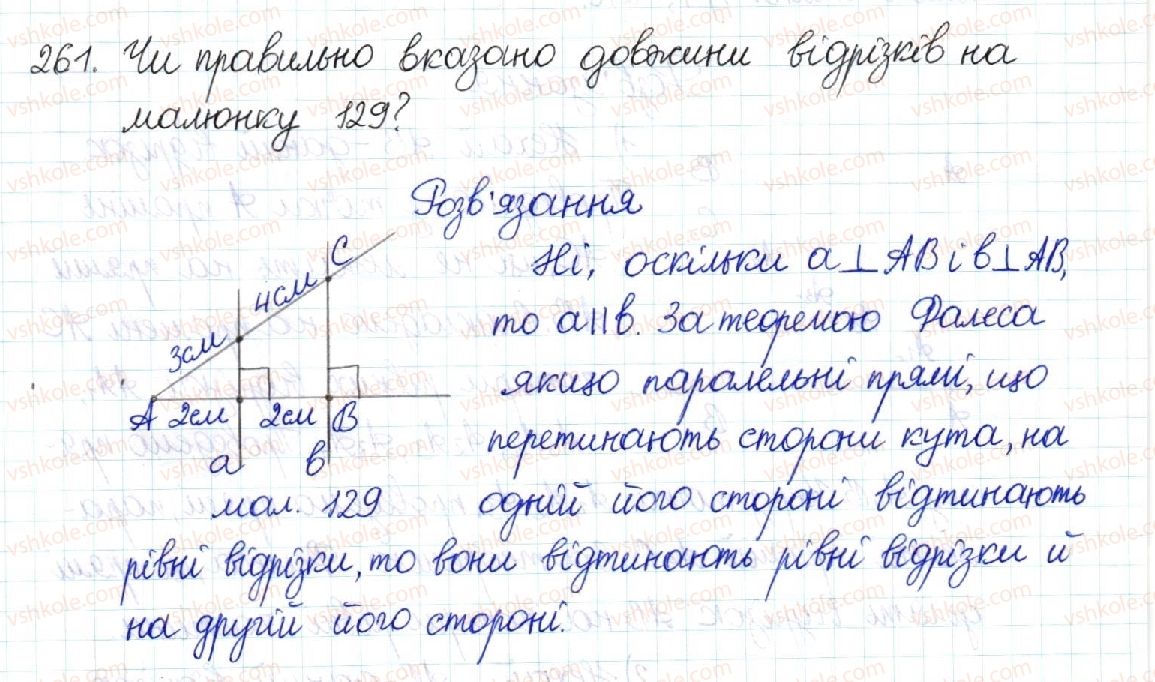 261. Чи правильно вказано довжини відрізків на
малюнку 129?
Розв'язання
Ні, оскільки a⊥AB і b⊥AB,
то a||b. За теоремою Фалеса
якщо паралельні прямі, що
перетинають сторони кута, на
одній його стороні відтинають
рівні відрізки, то вони відтинають рівні відрізки й
на другій його стороні.
C
4см
3см
A 2см 2см B
a b
мал. 129
vshkole.com